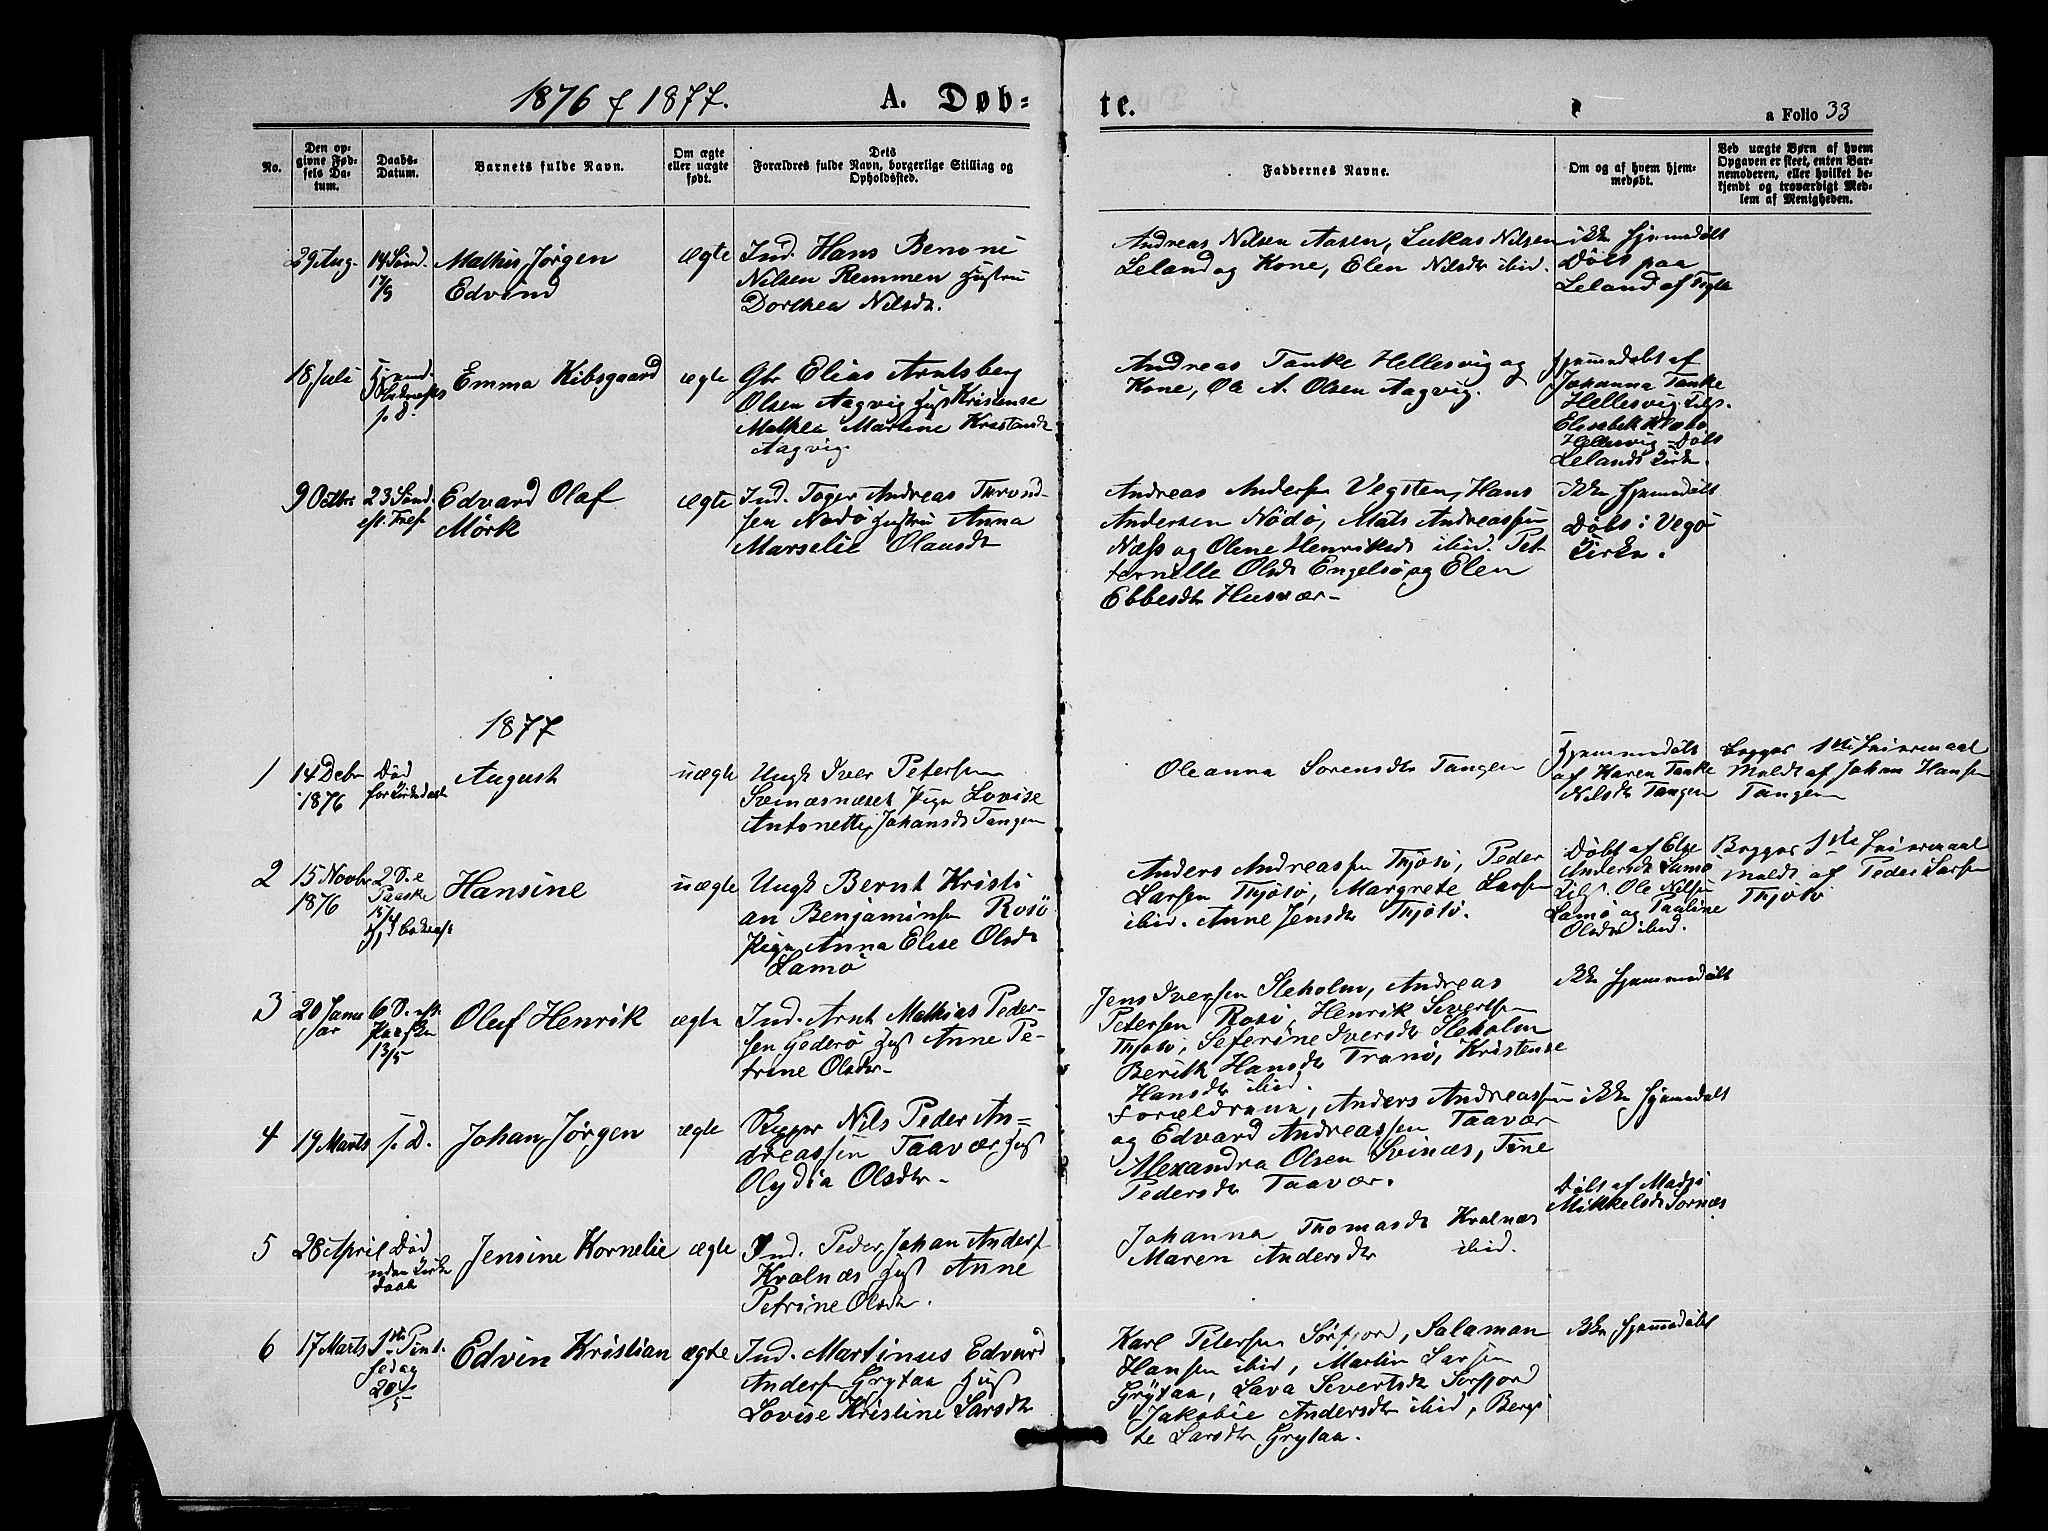 1876 & 1877.
A. Døb=
te.
a Folio 33
No.
Den op-
givne Fød-
sels Da-
tum.
Daabs-
Datum.
Barnets fulde Navn.
Om ægte
eller uægte
født.
Dets
Forældres fulde Navn, borgerlige Stilling og
Opholdssted.
Faddernes Navne.
Om og af hvem hjem-
medøbt.
Ved uægte Børn af hvem
Opgaven er skeet, enten Bar-
nemoderen, eller hvilket be-
kjendt og troværdigt Med-
lem af Menigheden.
29 Aug.
14 Sønd.
17/9
Mathis Jørgen
Edvind
ægte
Ind. Hans Benoni
Nilsen Remmen Hustru
Dorthea Nilsdt.
Andreas Nilsen Aasen, Lukas Nilsen
Leland og Kone, Elen Nilsdt ibid.
ikke hjemmedøbt
Døbt paa
Leland af
18 Juli
s. D.
Emma Kibsgaard
ægte
Gbr Elias Arntsberg
Olsen Aagvig Hust Kristense
Mathea Martine Kristensdt
Aagvig.
Andreas Tanke Hellesvig og
Kone, Ole A. Olsen Aagvig.
Hjemmedøbt af
Johanna Tanke
Hellesvig. Tilst.
Elisabeth Kvæbo
Hellesvig - Døbt
Lelands Kirke.
9 Octbr
23 Sønd
eft. Tref
Edvard Olaf
Mörk
ægte
Ind. Toger Andreas Trond-
sen Nødø Hustru Anna
Marselie Olausdt
Andreas Andersen Vegsten, Hans
Andersen Nödö, Mats Andreassen
Næss og Olene Henriksdt ibid. Pet-
ternille Olsdt Engelsø og Elen
Ebbesdtr Husvær-
ikke hjemmedøbt
Døbt i Vegø
Kirke.
1877
1
14 Debr
1876
Død
før Kirkedaab
August
uægte
Ungk Iver Petersen
Svinæsnæset Pige Lovise
Antonette Johansdt Tangen
Oleanna Sørensdtr Tangen
Hjemmedøbt
af Karen Tanke
Nilsdtr Tangen
Begges 1ste Leiermaal
Meldt af Johan Hansen
Tangen
2
15 Novbr
1876
2 S. e
Paaske
15/4
Hansine
uægte
Ungk Bernt Kristi
an Benjaminsen Rosö
Pige Anna Elise Olsdt
Lamø
Anders Andreassen Thjøtø, Peder
Larsen Thjøtø, Margrete Larsen
ibid. Anne Jensdtr Thjøtø.
Døbt af Else
Andersdt Lamø
Tilst. Ole Nilsen
Lamø og Pauline
Olsdtr ibid.
Begges 1ste Leiermaal
Meldt af Peder Larsen
Thjøtø
3
20 Janu
ar
6 S. eft.
Paaske
13/5
Oluf Henrik
ægte
Ind. Arnt Mathias Peder-
sen Gederø Hust Anne Pe-
trine Olsdtr-
Jens Iversen Sleholm, Andreas
Petersen Rosø, Henrik Severtsen
Thjøtø, Seferine Iversdt Sleholm
Berith Hansdtr Tranø, Kristense
Hansdtr ibid.
ikke hjemmedøbt
4
19 Marts
s. D.
Johan Jørgen
ægte
Nils Peder An=
dreassen Taavær Hust
Olydia Olsdtr-
Forældrene, Anders Andreassen
og Edvard Andreassen Taavær
Alexandra Olsen Svinæs, Tine
Pedersdtr Taavær.
ikke hjemmedøbt
5
28 April
Død
uden Kirke
daab
Jensine Kornelie
ægte
Ind. Peder Johan Anders
Kvalnæs Hust Anne
Petrine Olsdtr.
Johanna Thomasdt Kvalnæs
Maren Andersdtr ibid.
Døbt af Madsi
Mikkelsdt Sørnæs
6
17 Marts
1ste Pint-
sedag
20/5
Edvin Kristian
ægte
Ind. Martinus Edvard
Andersen Grytaa Hust
Lovise Kristine Larsdtr
Karl Petersen Sørfjord, Salamon
Hansen ibid, Martin Larsen
Grytaa, Lava Severtsdtr Sørfjord
Jakobie Andersdtr ibid, Bergi
te Larsdtr Grytaa.
ikke hjemmedøbt